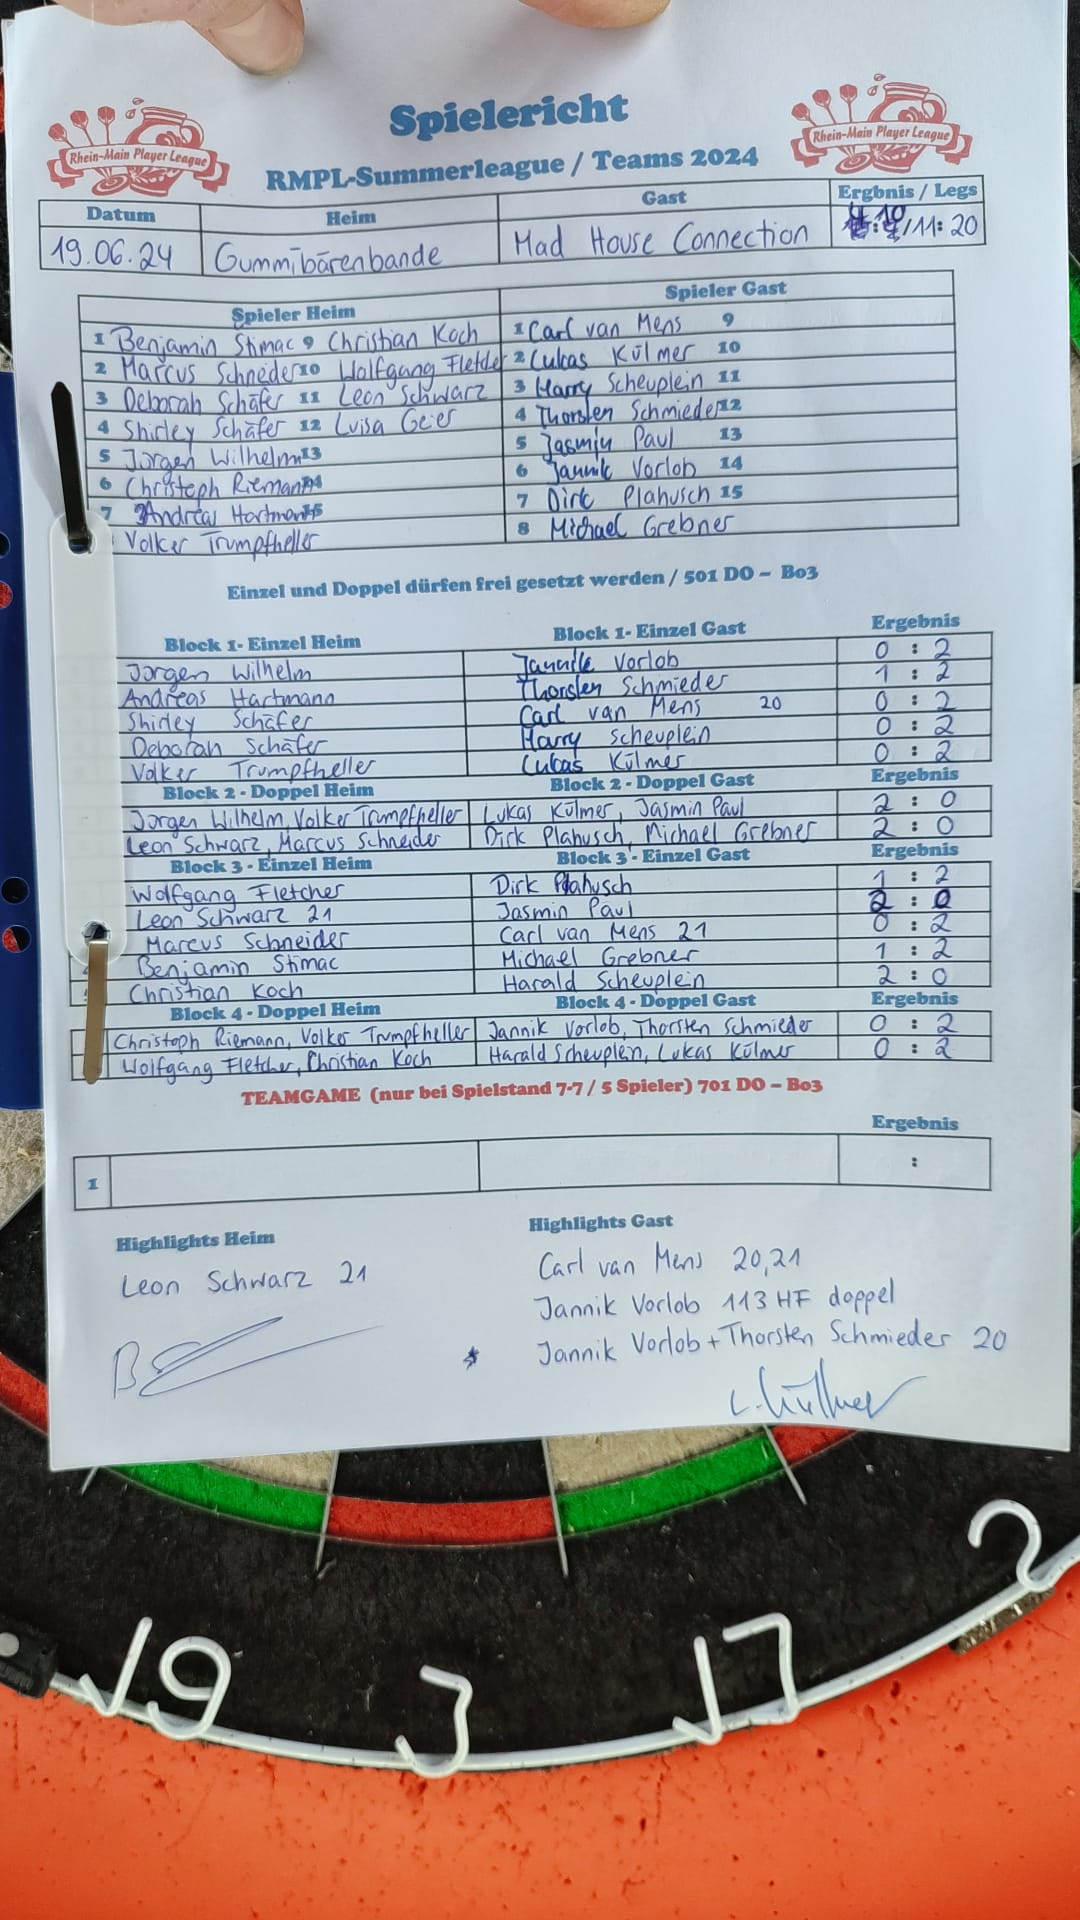 Rhein-Main Player League
Spielericht
Rhein-Main Player League
RMPL-Summerleague / Teams 2024
Datum Heim Gast Ergbnis / Legs
19.06.24 Gummibärenbande Mad House Connection 10 /11:20
Spieler Heim Spieler Gast
1 Benjamin Stimac 9 Christian Koch 1 Carl van Mens 9
2 Marcus Schneder 10 Wolfgang Fletcher 2 Lukas Külmer 10
3 Deborah Schäfer 11 Leon Schwarz 3 Harry Scheuplein 11
4 Shirley Schäfer 12 Luisa Geier 4 Thorsten Schmieder 12
5 Jörgen Wilhelm 13 5 Jasmin Paul 13
6 Christoph Riemann 14 6 Jannik Vorlob 14
7 Andreas Hartmann 15 7 Dirk Plahusch 15
Volker Trumpfheller 8 Michael Grebner
Einzel und Doppel dürfen frei gesetzt werden / 501 DO – Bo3
Block 1- Einzel Heim Block 1- Einzel Gast Ergebnis
Jörgen Wilhelm Jannik Vorlob 0 : 2
Andreas Hartmann Thorsten Schmieder 1 : 2
Shirley Schäfer Carl van Mens 20 0 : 2
Deborah Schäfer Harry scheuplein 0 : 2
Volker Trumpfheller Lukas Külmer 0 : 2
Block 2 - Doppel Heim Block 2 - Doppel Gast Ergebnis
Jörgen Wilhelm, Volker Trumpfheller Lukas Külmer, Jasmin Paul 2 : 0
Leon Schwarz, Marcus Schneider Dirk Plahusch, Michael Grebner 2 : 0
Block 3 - Einzel Heim Block 3 - Einzel Gast Ergebnis
Wolfgang Fletcher Dirk Plahusch 1 : 2
Leon Schwarz 21 Jasmin Paul 2 : 0
Marcus Schneider Carl van Mens 21 0 : 2
Benjamin Stimac Michael Grebner 1 : 2
Christian Koch Harald Scheuplein 2 : 0
Block 4 - Doppel Heim Block 4 - Doppel Gast Ergebnis
Christoph Riemann, Volker Trumpfheller Jannik Vorlob, Thorsten Schmieder 0 : 2
Wolfgang Fletcher, Christian Koch Harald Scheuplein, Lukas Külmer 0 : 2
TEAMGAME (nur bei Spielstand 7-7 / 5 Spieler) 701 DO – Bo3
Ergebnis
1 :
Highlights Heim Highlights Gast
Leon Schwarz 21 Carl van Mens 20,21
Jannik Vorlob 113 HF doppel
Jannik Vorlob + Thorsten Schmieder 20
19 3 17 2